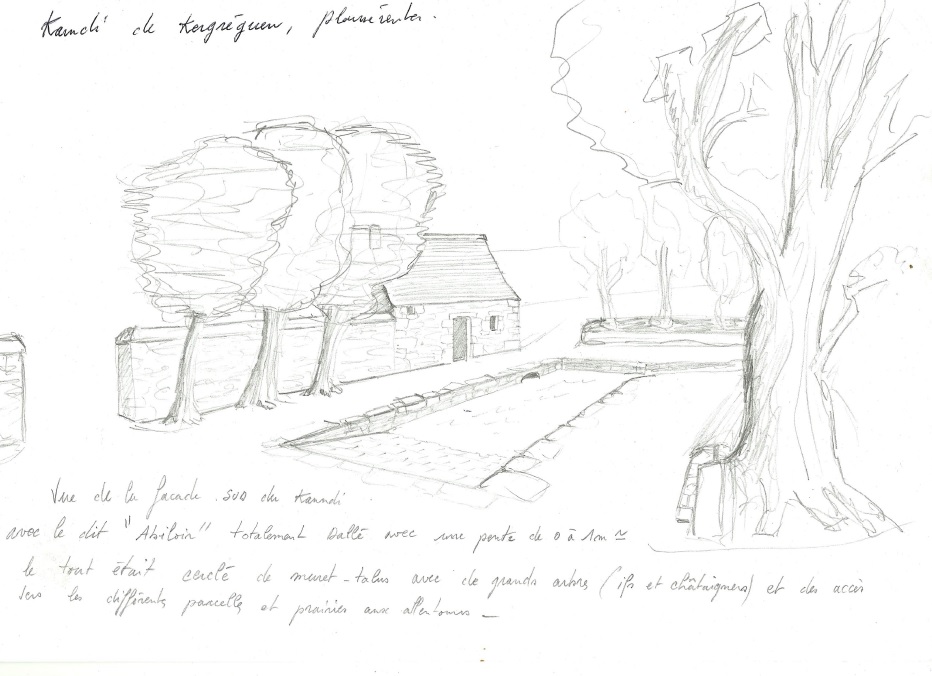 Kanndi de Kergréguen, plounérenter.
Vue de la façade . SUD du Kanndi .
avec le dit "Abiloir" totalement Dallé avec une pente de 0 à 1m ≃
le tout était cerclé de muret-talus avec de grands arbres (ifs et châtaigners) et des accès
vers les différents parcelle et prairies aux allentours –